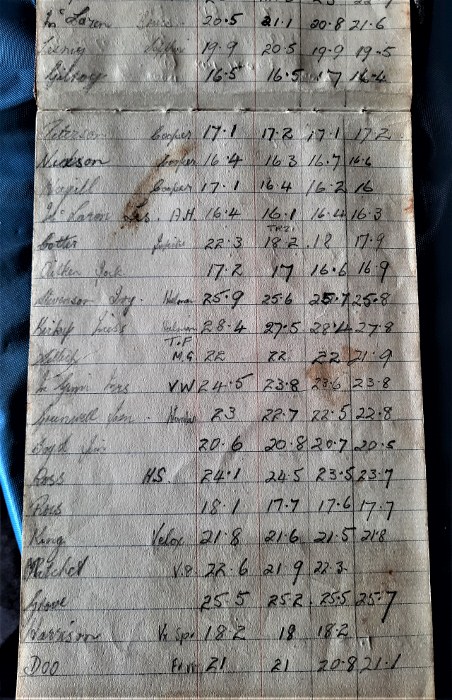 Mc Laren 20.5 21.1 20.8 21.6
19.9 20.5 19.9 19.5
Gilroy 16.5 16.5 17 16.4
Peterson Cooper 17.1 17.2 17.1 17.2
Nickson Cooper 16.4 16.3 16.7 16.6
Magill Cooper 17.1 16.4 16.2 16
Mc Laren Les. A.H. 16.4 16.1 16.4 16.3
TR21
Cotter 22.3 18.2 18 17.9
Aitken Jock 17.2 17 16.6 16.9
Stevenson Holman 25.9 25.6 25.7 25.8
Holman 28.4 27.5 28.4 27.8
T.F
M.G 22 22 22 21.9
V.W 24.5 23.8 23.6 23.8
23 22.7 22.5 22.8
Boyd Jim 20.6 20.8 20.7 20.5
Ross H.S. 24.1 24.5 23.5 23.7
Ross 18.1 17.7 17.6 17.7
King Velox 21.8 21.6 21.5 21.8
Mitchel V.8 22.6 21.9 22.3
Glove 25.5 25.2 25.5 25.7
Harrison V8 Spc 18.2 18 18.2
Doo 21 21 20.8 21.1